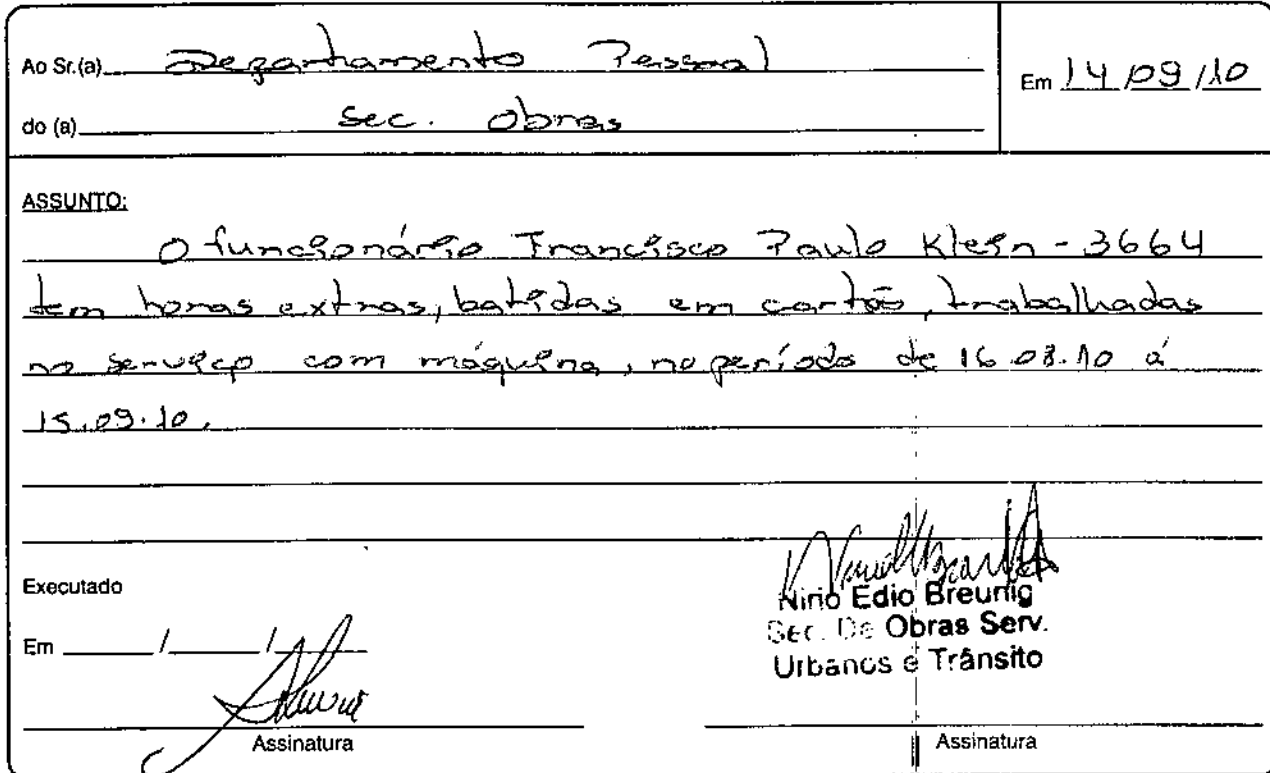 Ao Sr.(a) Departamento Pessoal
Em 14/09/10
do (a) Sec. Obras
ASSUNTO:
O funcionário Francisco Paulo Klein - 3664
tem horas extras, batidas em cartão, trabalhadas
no serviço com máquina, no período de 16.08.10 á
15.09.10.
Executado
Em / /
Nirio Edio Breunig
Sec. De Obras Serv.
Urbanos e Trânsito
Assinatura
Assinatura